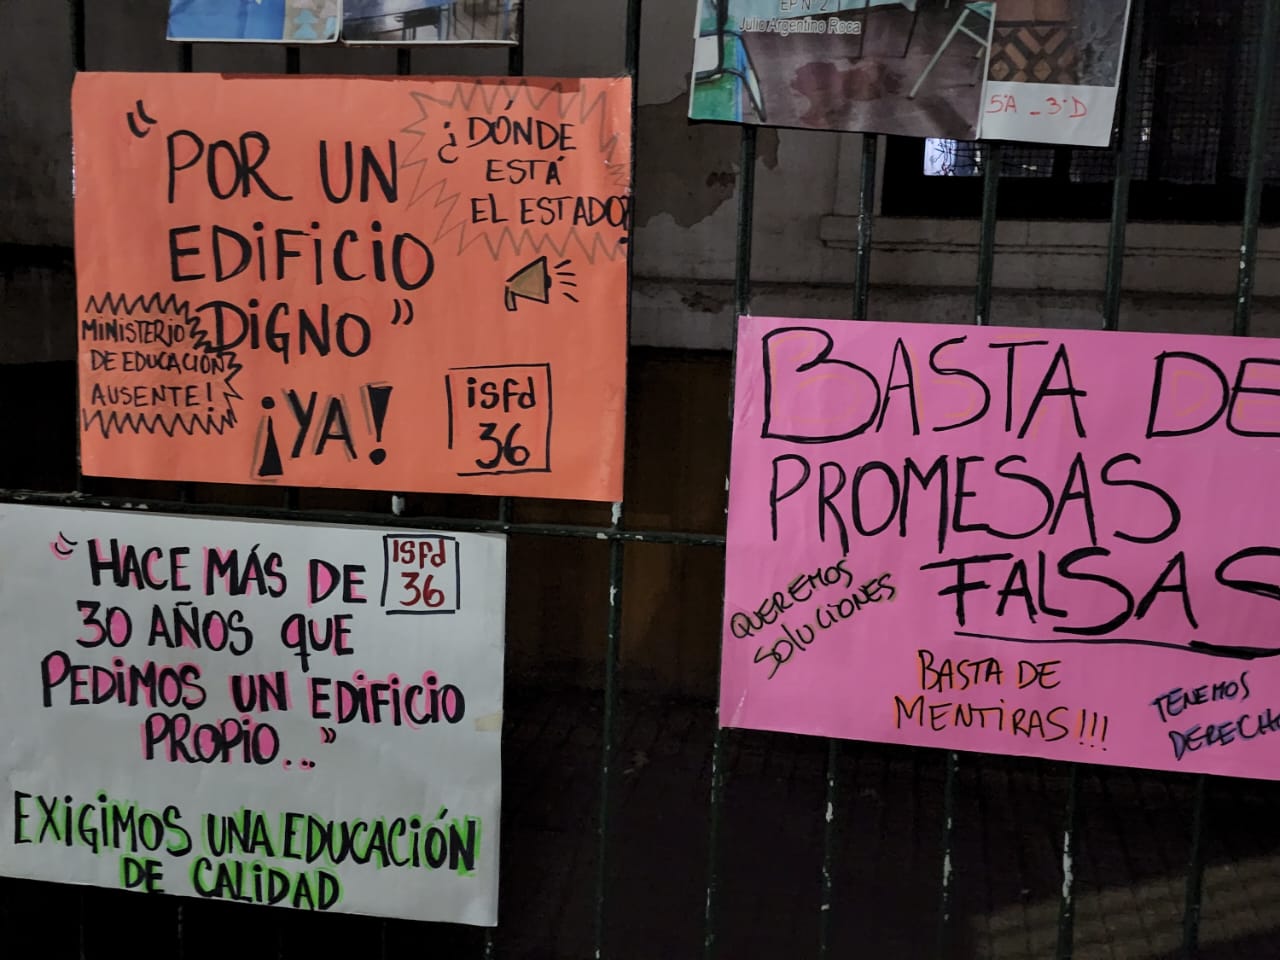 EP N° 2
Julio Argentino Roca
5°A - 3°D
"POR UN
EDIFICIO
DIGNO"
¡YA!
¿DÓNDE
ESTÁ
EL ESTADO?
MINISTERIO
DE EDUCACIÓN
AUSENTE!
isfd
36
"HACE MÁS DE
30 AÑOS QUE
PEDIMOS UN EDIFICIO
PROPIO..."
ISFD
36
EXIGIMOS UNA EDUCACIÓN
DE CALIDAD
BASTA DE
PROMESAS
FALSAS
QUEREMOS
SOLUCIONES
BASTA DE
MENTIRAS!!!
TENEMOS
DERECHO